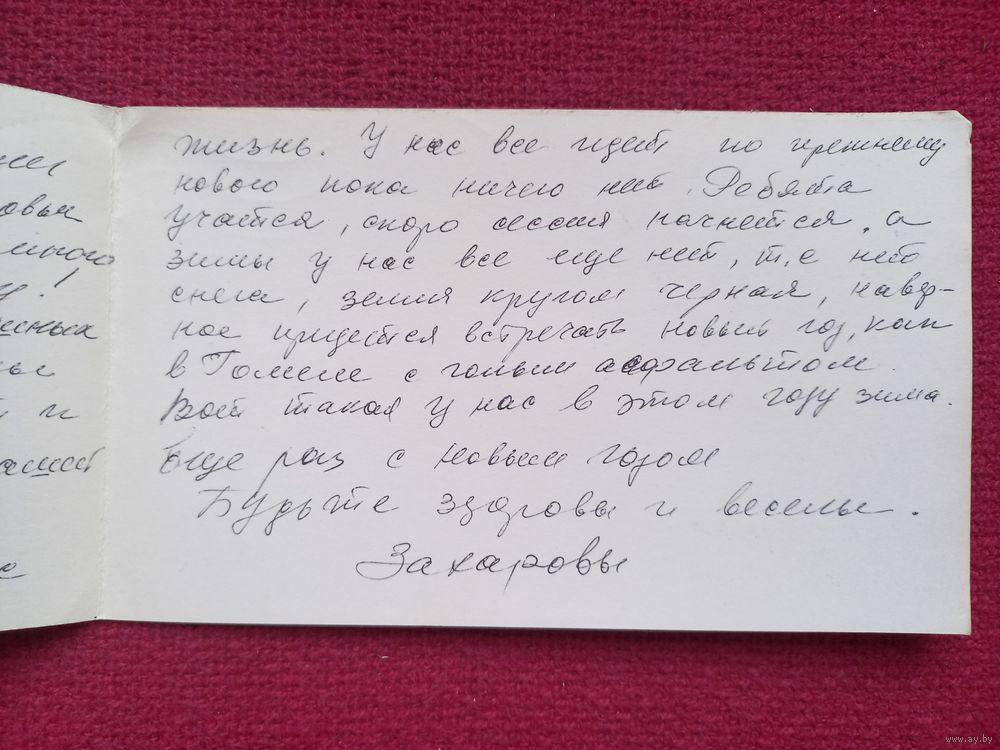 жизнь. У нас все идет по прежнему
нового пока ничего нет. Ребята
учатся, скоро сессия начнется, а
зимы у нас все еще нет, т.е нет
снега, земля кругом черная, навер-
ное придется встречать новый год, как
в Гомеле с голым асфальтом.
Вот такая у нас в этом году зима.
Еще раз с новым годом
Будьте здоровы и веселы.
Захаровы
www.ay.by